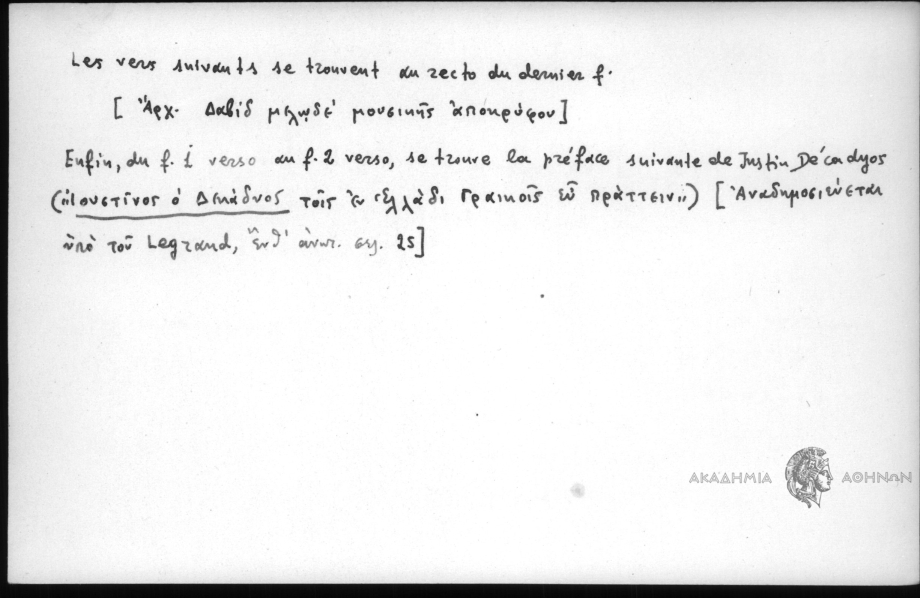 Les vers suivants se trouvent au recto du dernier f.
[Ἀρχ. Δαβίδ μελῳδέ μουσικῆς ἀποκρύφου]
Enfin, du f. 1 verso au f. 2 verso, se trouve la préface suivante de Justin Décadyos
(«Ἰουστῖνος ὁ Δεκάδυος τοῖς ἐν Ἑλλάδι Γραικοῖς εὖ πράττειν») [Ἀναδημοσιεύεται
ὑπὸ τοῦ Legrand, ἔνθ' ἀνωτ. σελ. 25]
ΑΚΑΔΗΜΙΑ ΑΘΗΝΩΝ